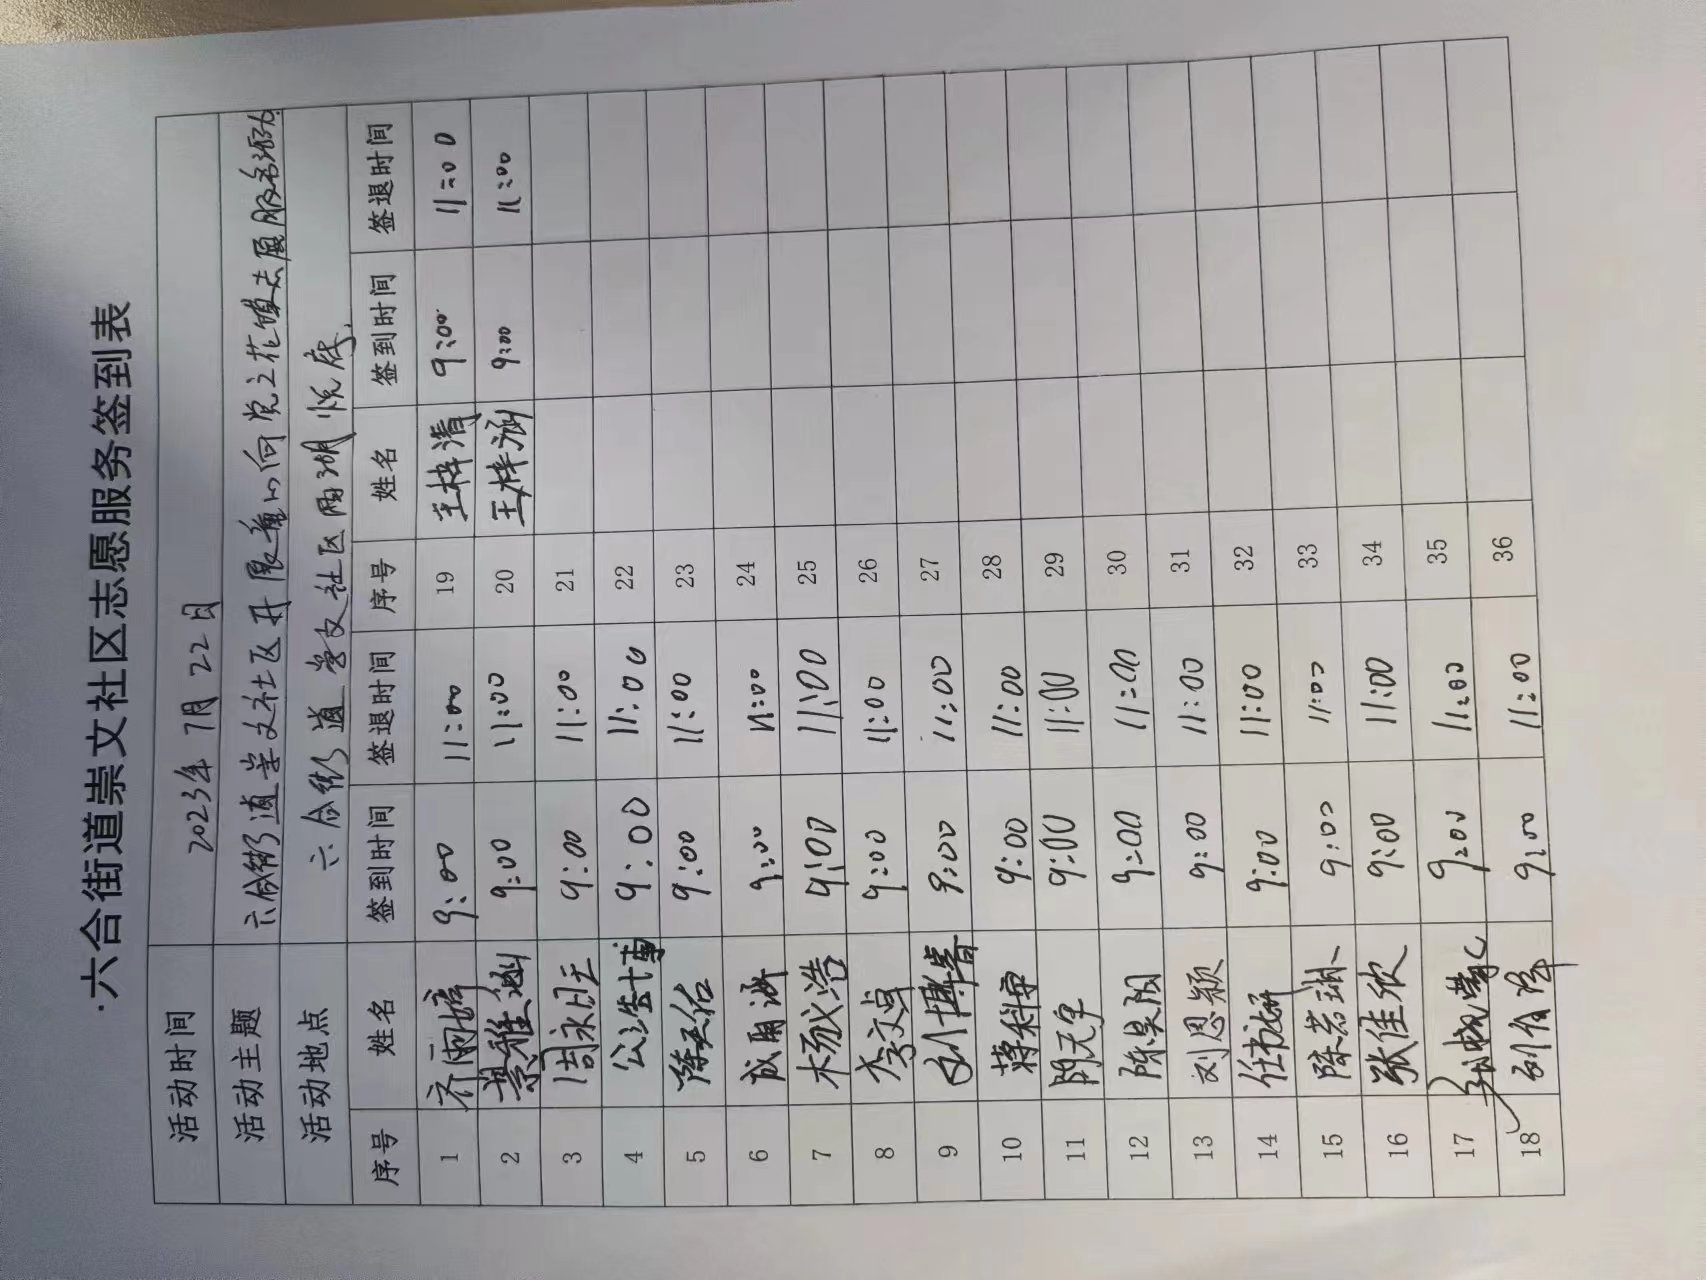 六合街道崇文社区志愿服务签到表
活动时间 2023年7月22日
活动主题 六合街道崇文社区开展童心向党之花馍志愿服务活动
活动地点 六合街道崇文社区雨湖悦府.
序号 姓名 签到时间 签退时间 序号 姓名 签到时间 签退时间
1 齐雨婷 9:00 11:00 19 王梓清 9:00 11:00
2 景雅涵 9:00 11:00 20 王梓涵 9:00 11:00
3 周永昕 9:00 11:00 21
4 9:00 11:00 22
5 陈天佑 9:00 11:00 23
6 成雨沂 9:00 11:00 24
7 杨火浩 9:00 11:00 25
8 李文卓 9:00 11:00 26
9 刘博睿 9:00 11:00 27
10 蒋科宇 9:00 11:00 28
11 阴天宇 9:00 11:00 29
12 陈昊阳 9:00 11:00 30
13 刘思颖 9:00 11:00 31
14 任书妍 9:00 11:00 32
15 陈若琳 9:00 11:00 33
16 张佳欣 9:00 11:00 34
17 9:00 11:00 35
18 9:00 11:00 36